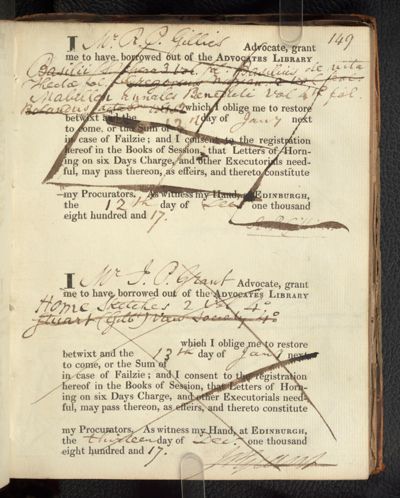 149
I Mr R. P. Gillies Advocate, grant
me to have borrowed out of the ADVOCATES LIBRARY
Basilii 3 vol. de vita
fol.
Mabillon Annales Benedicti Vol 4th fol.
which I oblige me to restore
betwixt and the 12th day of Jany next
to come, or the Sum of
in case of Failzie; and I consent to the registration
hereof in the Books of Session, that Letters of Horn-
ing on six Days Charge, and other Executorials need-
ful, may pass thereon, as effeirs, and thereto constitute
my Procurators. As witness my Hand, at EDINBURGH,
the 12th day of Decr one thousand
eight hundred and 17.
I Mr J. P. Grant Advocate, grant
me to have borrowed out of the ADVOCATES LIBRARY
Home Sketches 2 Vol 4o
Stuart (Gilb) View Society 4o
which I oblige me to restore
betwixt and the 13th day of Jany next
to come, or the Sum of
in case of Failzie; and I consent to the registration
hereof in the Books of Session, that Letters of Horn-
ing on six Days Charge, and other Executorials need-
ful, may pass thereon, as effeirs, and thereto constitute
my Procurators. As witness my Hand, at EDINBURGH,
the thirteen day of Decr one thousand
eight hundred and 17.